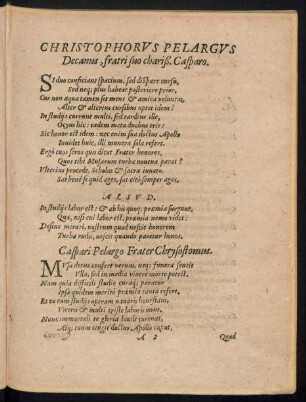 CHRISTOPHORVS PELARGVS
Decanus, fratri suo chariß. Casparo.
SI duo conficiant spacium, sed dispare cursu,
Sed neq; plus habeat posteriore prior,
Cur non æqua tamen sit mens & amica voluntas,
Alter & alterius cursibus optet idem?
In studijs currunt multi, sed tardius ille,
Ocyus hic: eadem meta duobus erit:
Sic hunc est idem: nec enim sua doctus Apollo
Invidet huic, illi munera sola refert.
Ergò cur serus quis dicat Frater honores,
Quos tibi Musarum turba novena parat?
Vlterius procede, Scholas & sacra iuvato:
Sat benè si quid ages, sat citò semper ages.
ALIVD.
In studijs labor est: & ab hic quoq; præmia surgunt,
Quæ, nisi cui labor est, præmia nemo videt:
Desine mirari, nostrum quod nescit honorem
Turba rudis, nescit quando paretur honos.
Caspari Pelargo Frater Chrysostomus.
MUsa decus confert verum, neq; funera sentit
Vlla, sed in media vivere morte potest.
Nam quia difficili studio curaq; paratur
Ipsa quidem meritò præmia tanta refert,
Et tu cum studijs operam navaris honestam,
Viceris & multi triste laboris onus,
Nunc immortali te gloria laude coronat,
Atq; tuum cingit doctus Apollo caput.
A 2 Quod